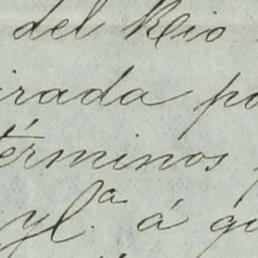 del Rio
irada po
términos
yl.ª á qu